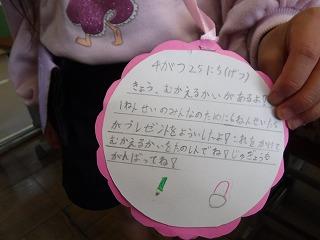 4がつ25にち(げつ)
きょう、むかえるかいがあるよ!
1ねんせいのみんなのために6ねんせいたち
がプレゼントをよういしたよ!これをかけて
むかえるかいをたのしんでね!じゅぎょうも
がんばってね!